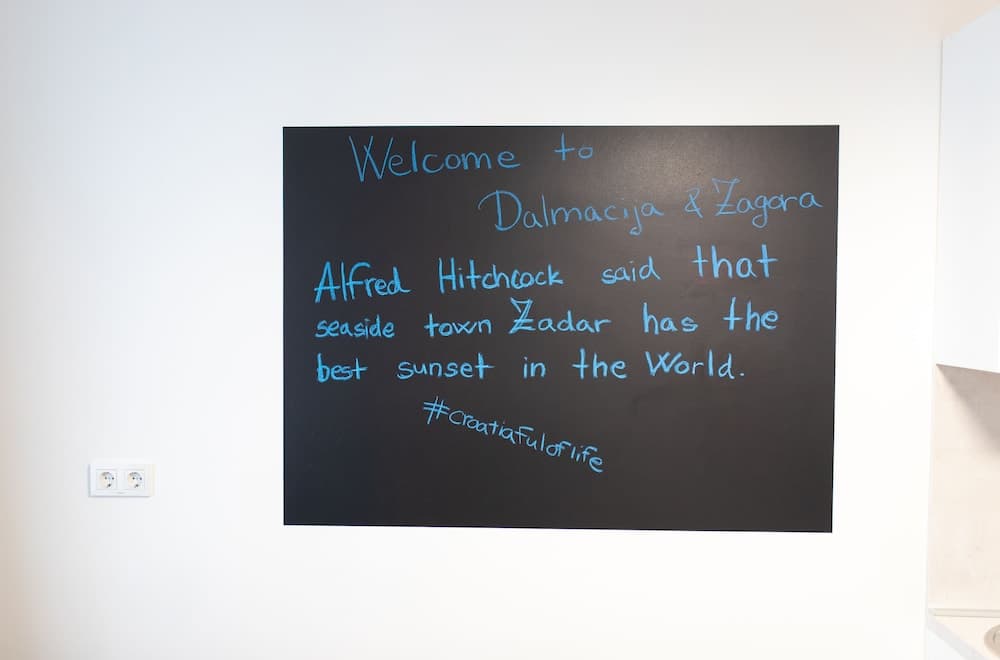 Welcome to
Dalmacija & Zagora
Alfred Hitchcock said that
seaside town Zadar has the
best sunset in the World.
#croatiafuloflife